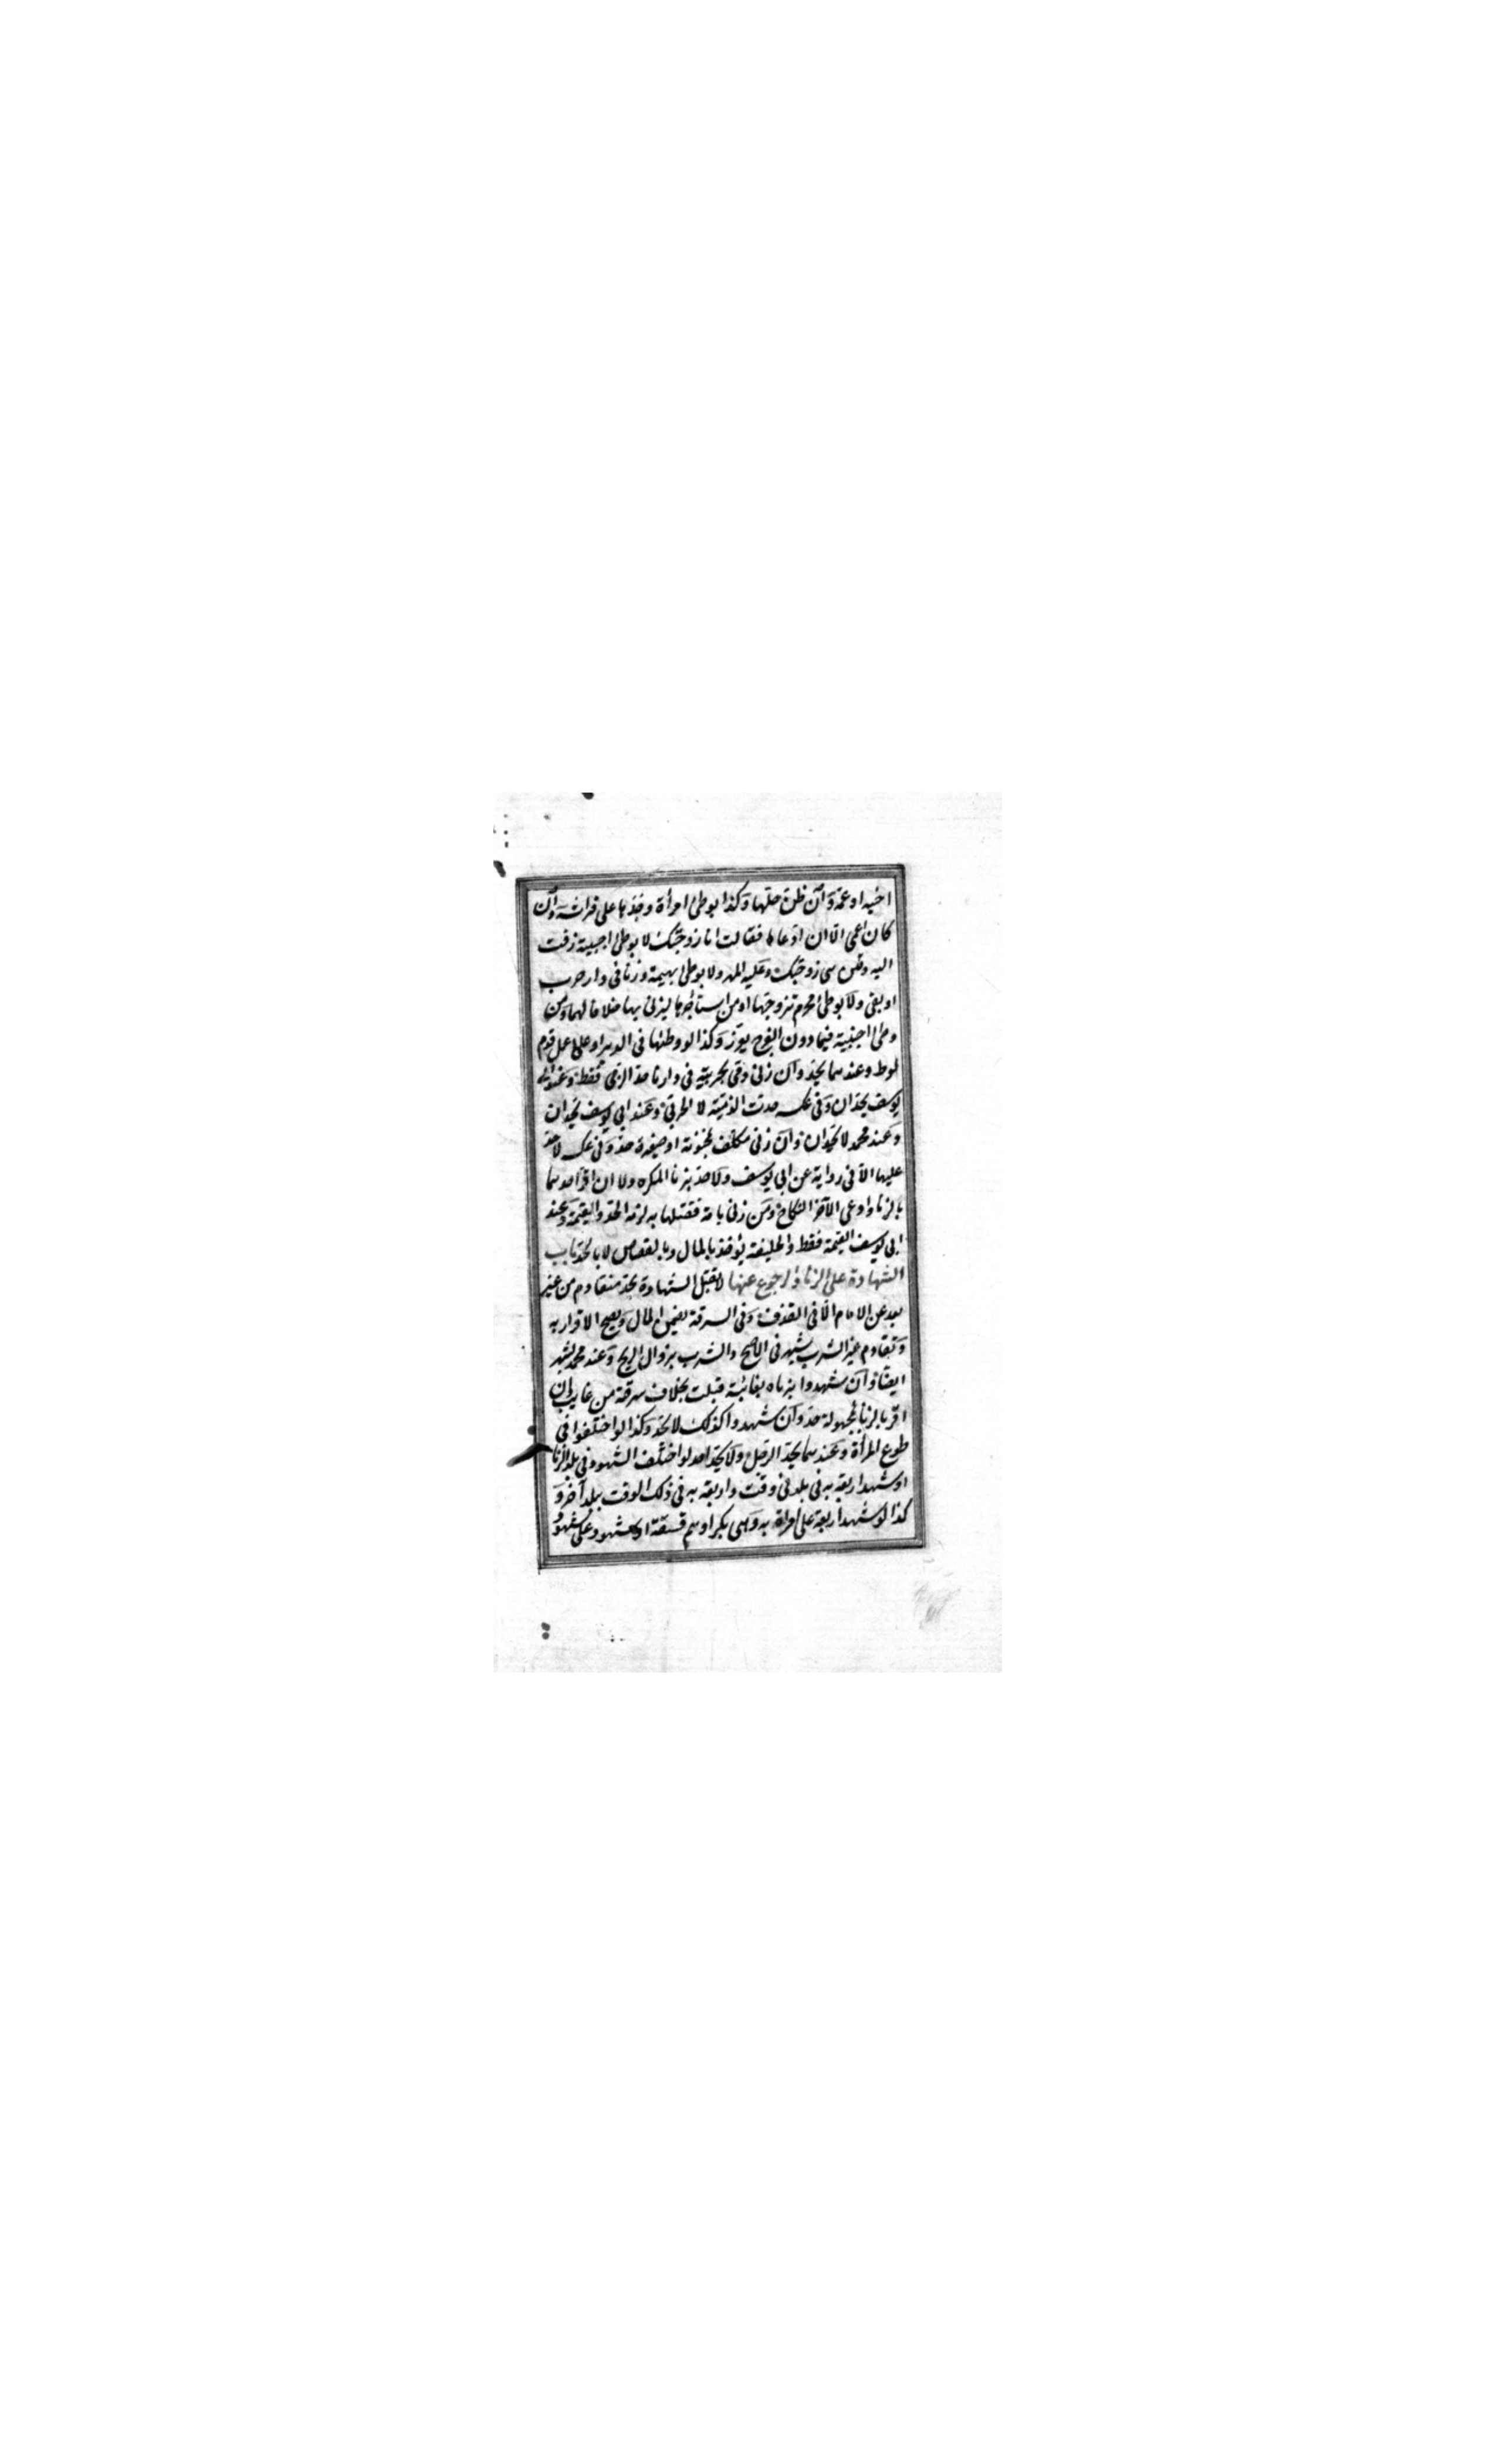 اخيه او عمه وان ظن حلها وكذا بوطئ امرأة وجدها على فراشه وان
كان اعمى الا ان ادعاها فقالت انا زوجتك لا بوطئ اجنبية زفت
اليه وقلن هى زوجتك وعليه المهر ولا بوطئ بهيمة وزنا فى دار حرب
او بغى ولا بوطئ محرم تزوجها او من استأجرها ليزنى بها خلافا لهما ومن
وطئ اجنبية فيما دون الفرج يعزر وكذا لو وطئها فى الدبر او عمل عمل قوم
لوط وعندهما يحد وان زنى ذمى بحربية فى دارنا حد الذمى فقط وعند ابى
يوسف يحدان وفى عكسه حدت الذمية لا الحربى وعند ابى يوسف يحدان
وعند محمد لا يحدان وان زنى مكلف بمجنونة او صغيرة حد وفى عكسه لا حد
عليهما الا فى رواية عن ابى يوسف ولا حد بزنا المكره ولا ان اقر احدهما
بالزنا وادعى الآخر النكاح ومن زنى بامة فقتلها به لزمه الحد والقيمة وعند
ابى يوسف القيمة فقط والخليفة يؤخذ بالمال وبالقصاص لا بالحد باب
الشهادة على الزنا والرجوع عنها لا تقبل الشهادة بحد متقادم من غير
بعد عن الامام الا فى القذف وفى السرقة يضمن المال ويصح الاقرار به
وتقادم غير الشرب بشهر فى الاصح والشرب بزوال الريح وعند محمد بشهر
ايضا وان شهدوا بزناه بغائبة قبلت بخلاف سرقة من غايب وان
اقر بالزنا بمجهولة حد وان شهدوا كذلك لا يحد وكذا لو اختلفوا فى
طوع المرأة وعندهما يحد الرجل ولا يحد احد لو اختلف الشهود فى بلد الزنا
او شهد اربعة به فى بلد فى وقت واربعة به فى ذلك الوقت ببلد آخر و
كذا لو شهد اربعة على امرأة به وهى بكر او هم فسقة او شهود على شهود